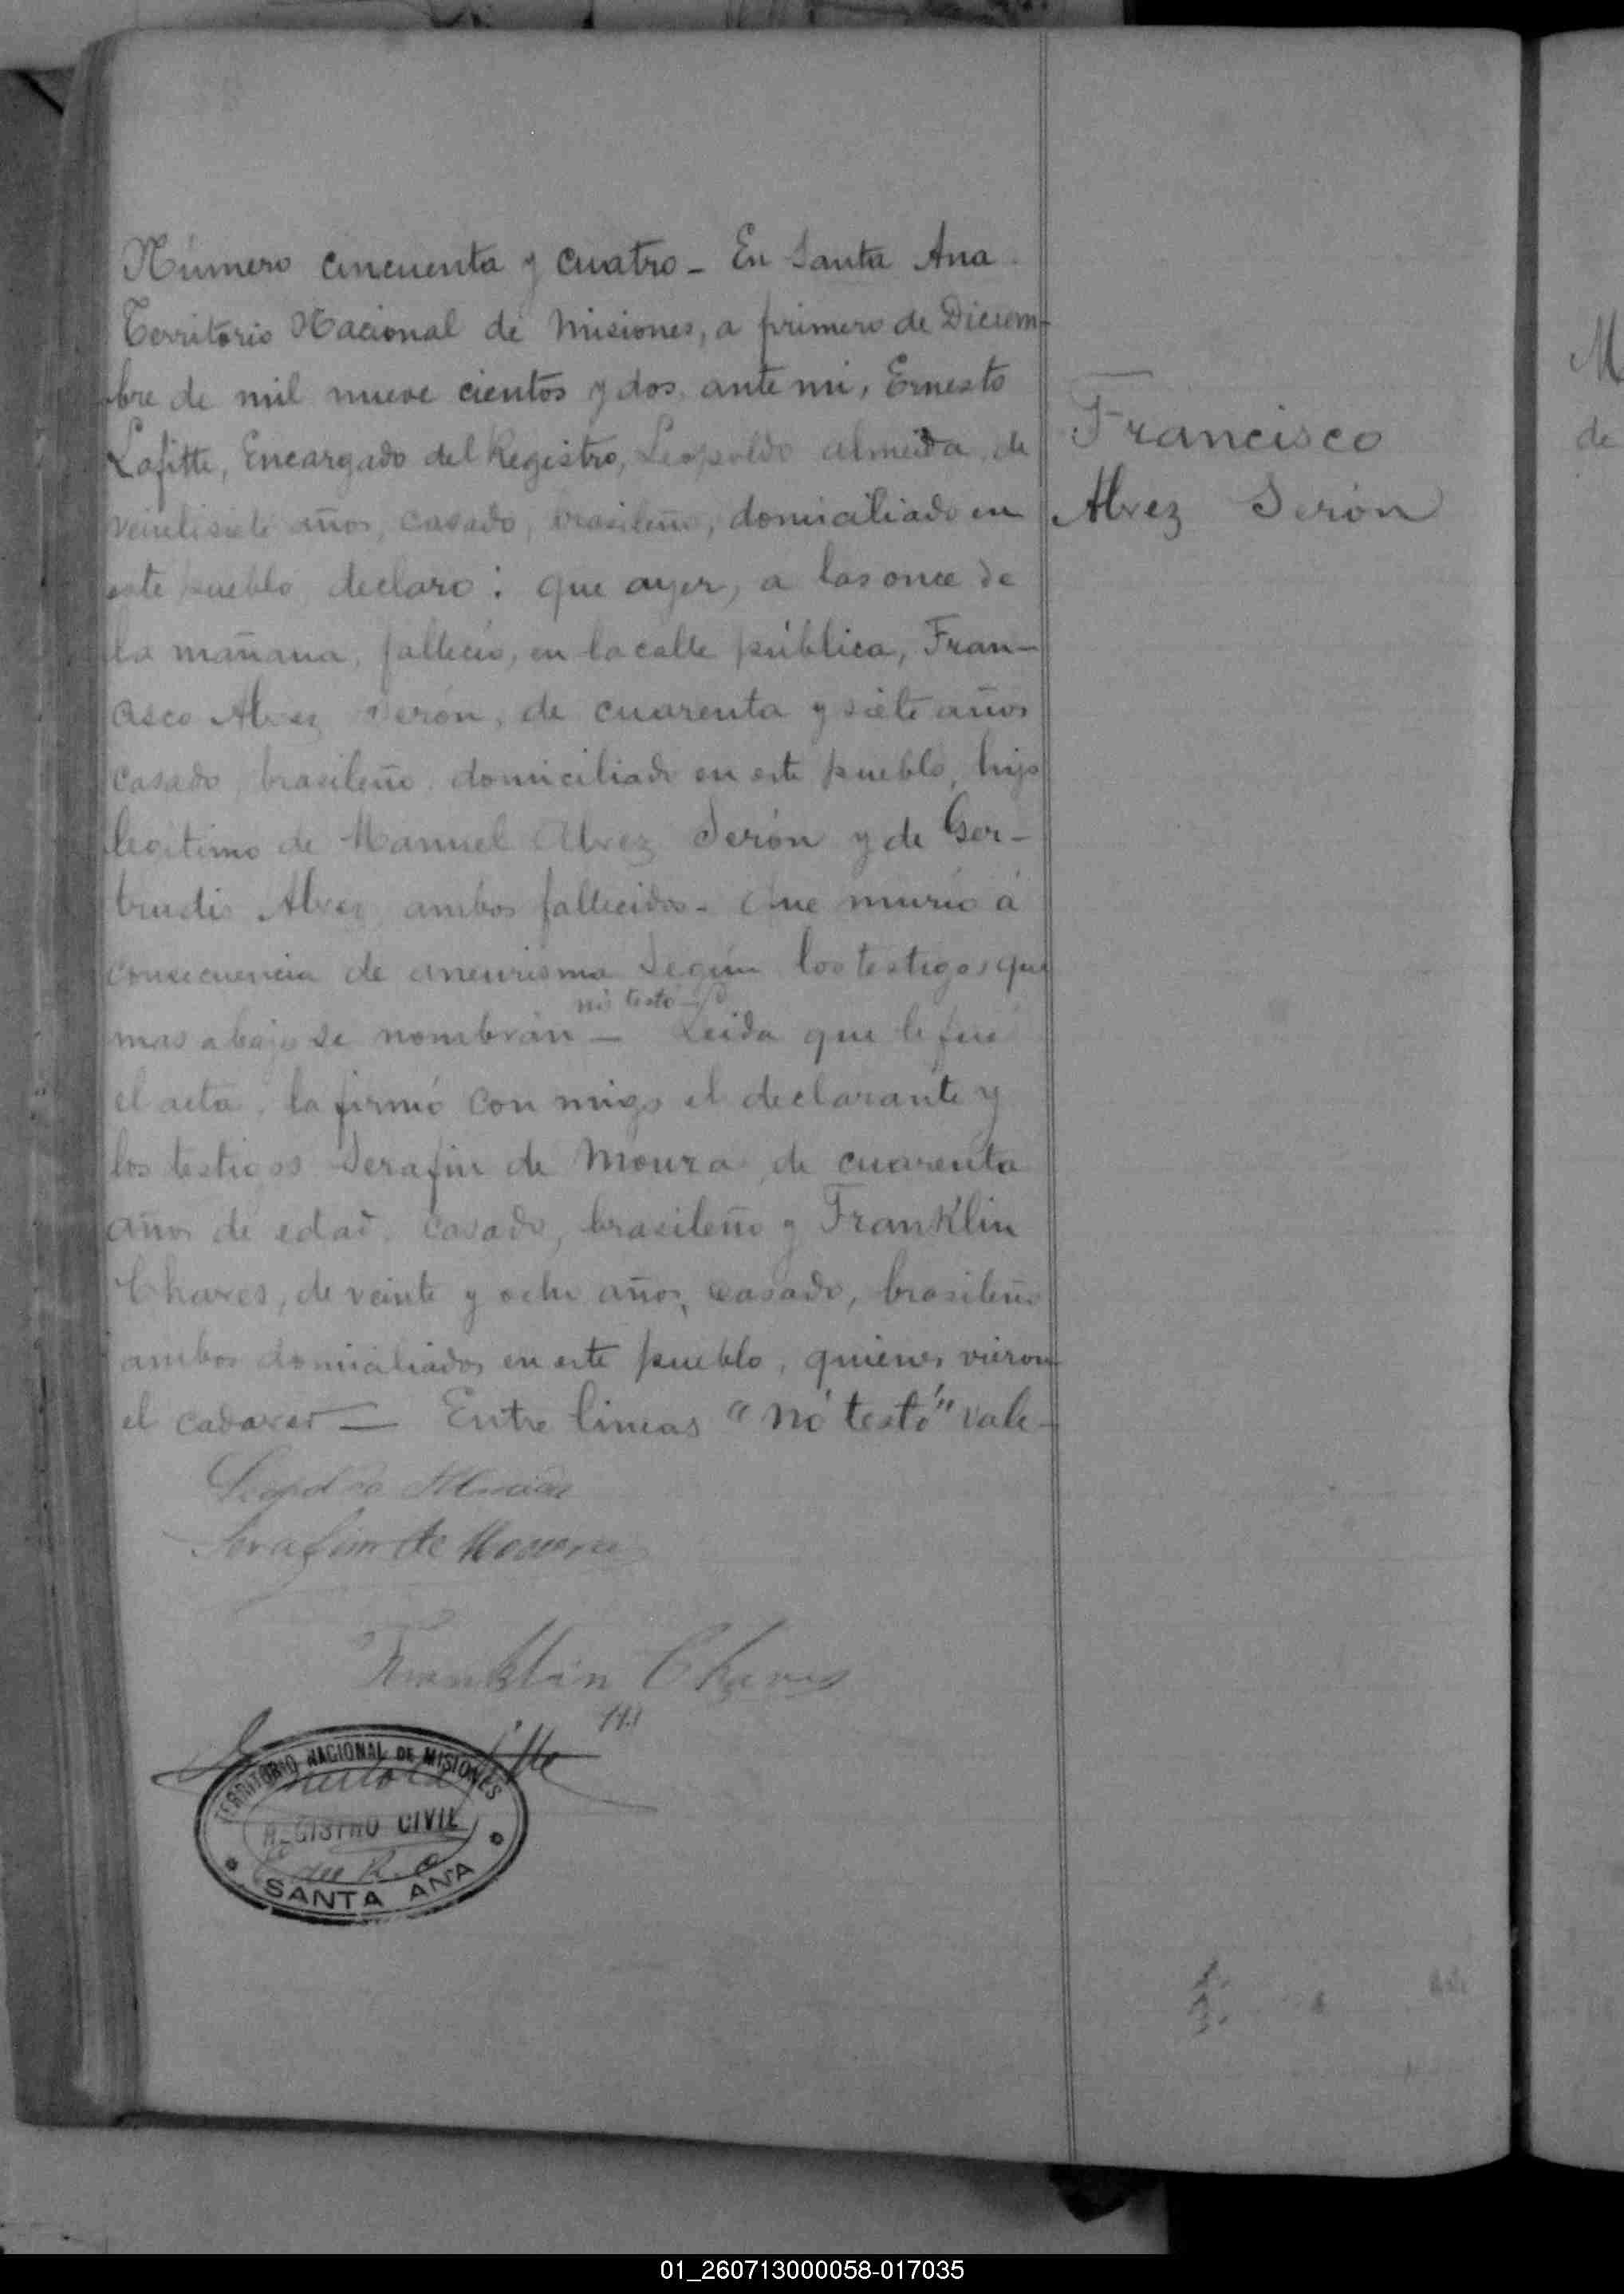 Número cincuenta y cuatro - En Santa Ana
Territorio Nacional de Misiones, a primero de Diciem-
bre de mil nueve cientos y dos, ante mi, Ernesto
Lafitte, Encargado del Registro, Leopoldo Almeida, de
veintisiete años, casado, brasileño, domiciliado en
este pueblo, declaro: que ayer, a las once de
la mañana, falleció, en la calle pública, Fran-
cisco Alvez Serón, de cuarenta y siete años
casado, brasileño, domiciliado en este pueblo, hijo
legítimo de Manuel Alvez Serón y de Ger-
trudis Alvez, ambos fallecidos - Que murió á
consecuencia de aneurisma según los testigos que
nó testó
mas abajo se nombrán - Leida que le fué
el acta, la firmó con migo el declarante y
los testigos Serafin de Moura, de cuarenta
años de edad, casado, brasileño y Franklin
Chaves, de veinte y ocho años, casado, brasileño
ambos domiciliados en este pueblo, quienes vieron
el cadaver - Entre lineas "nó testó" vale -
Francisco
Alvez Serón
Leopoldo Almeida
Serafim de Moura
Franklin Chaves
TERRITORIO NACIONAL DE MISIONES
REGISTRO CIVIL
SANTA ANA
M
de
01_260713000058-017035